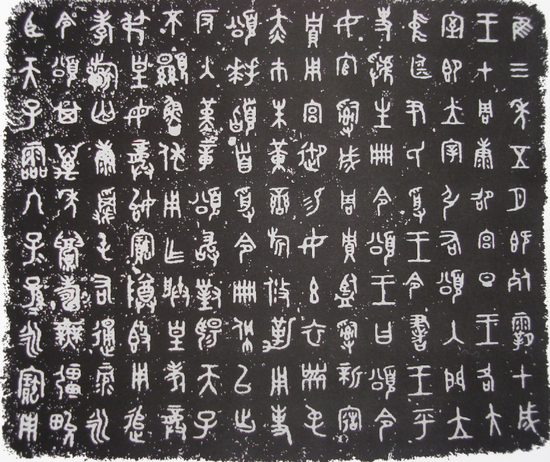 隹三年五月既死霸甲戌
王才周康卲宮旦王各大
室即立宰引右頌入門立
中廷尹氏受王令書王乎
史虢生冊令頌王曰頌令
女官𤔲成周貯監𤔲新造
貯用宮御易女玄衣黹屯
赤巿朱黃鑾旂攸勒用事
頌拜稽首受令冊佩以出
反入堇章頌敢對揚天子
不顯魯休用乍朕皇考龏
弔皇母龏始寶尊𣪘用追
孝𣄨匄康虔屯右通彔永
令頌其萬年眉壽無彊畯
臣天子霝冬子孫永寶用